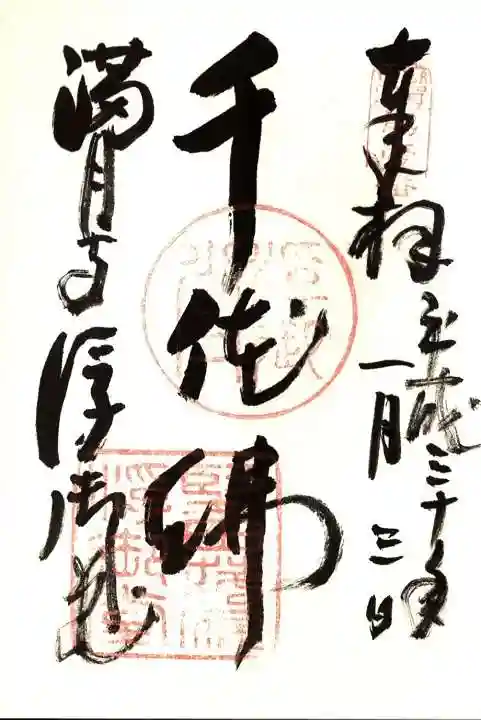 奉拝
平成三十年
一月三日
千体佛
満月寺浮御堂